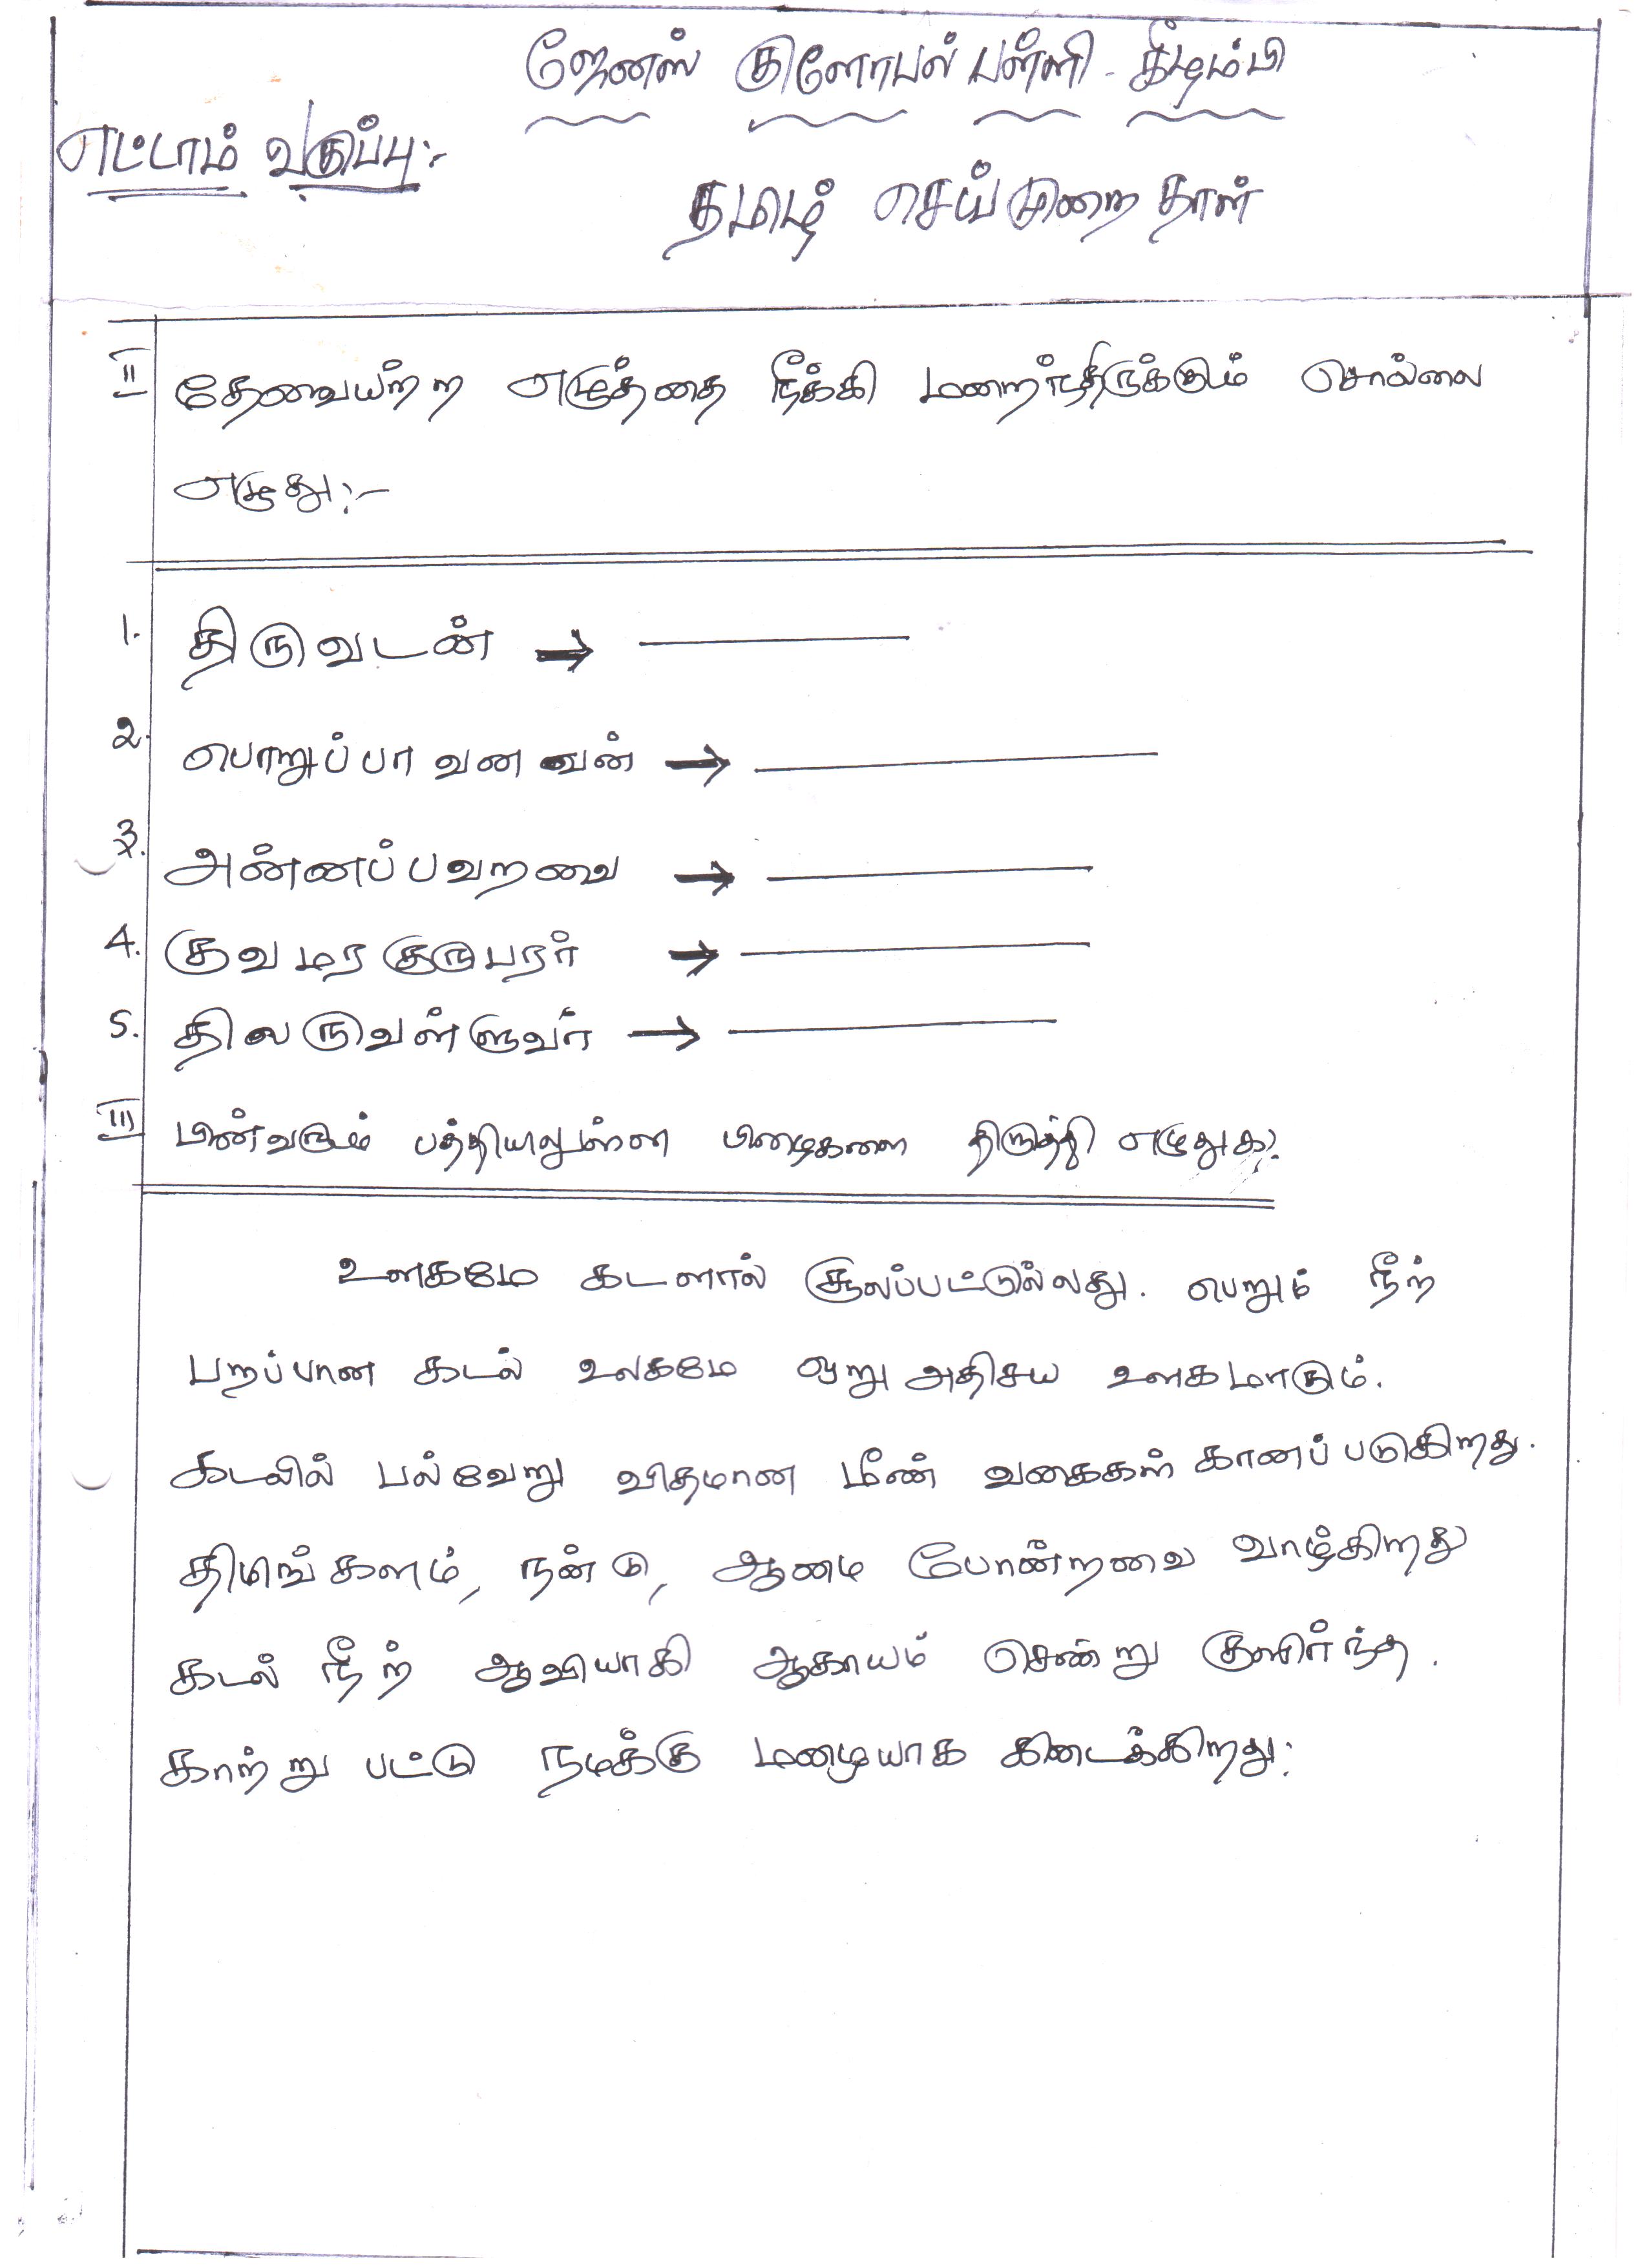 ஜேனஸ் குளோபல் பள்ளி - கீழம்பி
எட்டாம் வகுப்பு:-
தமிழ் செய்முறை தாள்
II தேவையற்ற எழுத்தை நீக்கி மறைந்திருக்கும் சொல்லை
எழுது:-
1. திருவடன் →
2. பொறுப்பா வன வன் →
3. அன்னப்பவறவை →
4. குவமரகுருபரர் →
5. திவருவள்ளுவர் →
III பின்வரும் பத்தியிலுள்ள பிழைகளை திருத்தி எழுதுக?
உளகமே கடளால் சூலப்பட்டுல்லது. பெறும் நீற்
பறப்பான கடல் உலகமே ஒறு அதிசய உளகமாகும்.
கடலில் பல்வேறு விதமான மீண் வகைகள் கானப்படுகிறது.
திமிங்களம், நன்டு, ஆமை போண்றவை வாழ்கிறது
கடல் நீற் ஆவியாகி ஆகாயம் செண்று குளிர்ந்த.
காற்று பட்டு நமக்கு மழையாக கிடைக்கிறது: